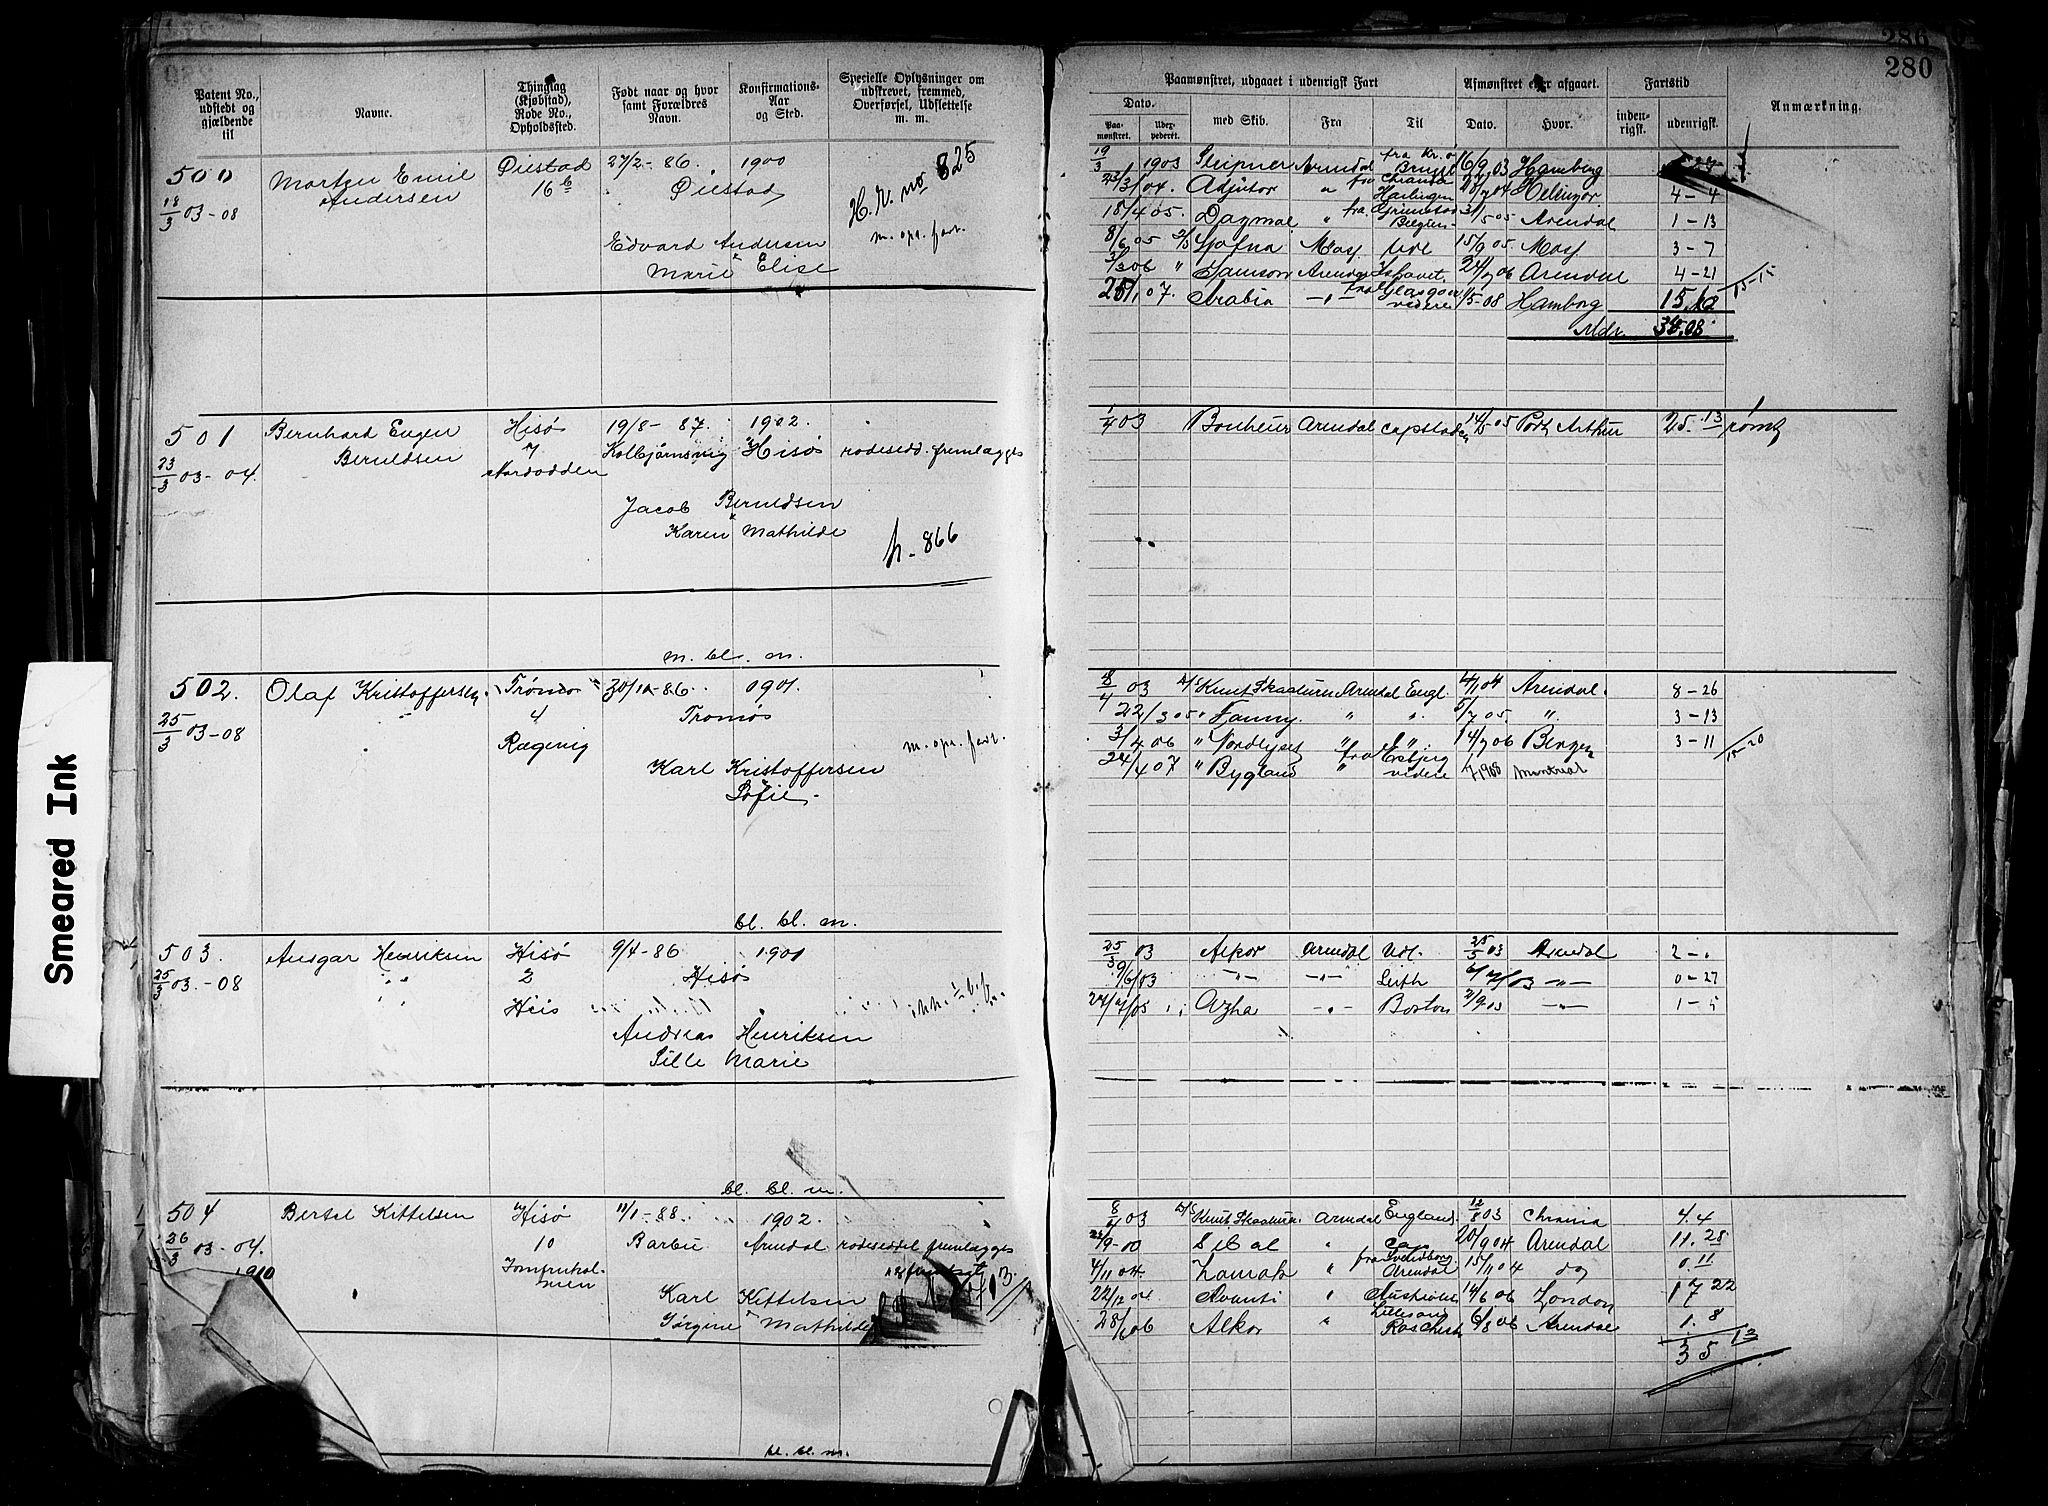 286
280
Patent No., udstedt og gjældende til
Navne.
Thinglag (Kjøbstad), Rode No., Opholdssted.
Født naar og hvor samt Forældres Navn.
Konfirmations-Aar og Sted.
Specielle Oplysninger om udskrevet, fremmed, Overførsel, Udslettelse m. m.
Paamønstret, udgaaet i udenrigsk Fart
Afmønstret eller afgaaet.
Fartstid
Anmærkning.
Dato.
Paa-mønstret.
Udex-pederet.
med Skib.
Fra
Til
Dato.
Hvor.
inden-rigsk.
udenrigsk.
500
18/3 03-08
Morten Emil Andersen
Øiestad
16 b
27/2-86. 1900
Øiestad
Edvard Andersen
Marie Elise
H. V. no 825
m. opr. fart.
19/3 1903 Sleipner Arendal 16/9 03 Hamborg
23/3 04. Adjutor " Harlingen Helsingør 4-4
18/4 05. Dagmar " fra Grimstad Belgien 31/5 05 Arendal 1-13
8/6 05 Mos Udl 15/9 05 Mos 3-7
3/3 06 " Samson Arendal Ishavet 24/7 06 Arendal 4-21
15-15
25/1 07. Arabia fra Glasgow videre 1/5-08 Hamborg
Mdr
501
23/3 03-04.
Bernhard Eugen Berntsen
Hisø
7
Nordodden
19/8-87. 1902.
Kolbjørnsvig Hisøs
rodesedd. fremlægges
Jacob Berntdsen
Karen Mathilde
h-866
1/4 03 Bonheur Arendal Capstaden 14/5 05 Port Arthur 25-13 rømt
m. bl. m.
502.
25/3 03-08
Olaf Kristoffersen
Tromø
4
Rægevig
30/10-86. 1901
Tromøs
Karl Kristoffersen
Sofie
m. opr. fart.
8/4 03 Knut Skaaluren Arendal Engl. 4/1 04 Arendal 8-26
22/3 05 " Fanny. " " 5/7 05. " 3-13
3/4 06 " Nordlyset " " 14/7 06 Bergen 3-11
15-20
24/4 07 " Bygland " fra Esbjerg videre 1908 Montreal
bl. bl. m.
503.
25/3 03.-08
Ansgar Henriksen
Hisø
2
His
9/4-86. 1901
Hisøs
Andreas Henriksen
Sille Marie
25/3 03 Alkor Arendal Udl. 25/5 03 Arendal 2-"
9/6/03 -"- -"- Leith -"- 0-27
Azha -"- Boston -"- 1-5
bl. bl. m.
504
26/3 03-04.
1910
Bertel Kittelsen
Hisø
10
Jomfruholmen
11/1-88. 1902.
Barbu Arendal rodeseddel fremlægges
Karl Kittelsen
Jørgine Mathilde
8/4 03 Knut Skaaluren Arendal England 12/8 03 Chrania 4.4
Sibal " Cap 20/9 04 Arendal 11.28
4/11 04. Zamak " fra Svendborg Arendal 15/11 04 do 0.11
22/12 04 Avanti " Australien 14/6 06 London 17 22
28/6 06 Alkor " Lillesand 6/8 06 Arendal 1. 8
35 13
bl. bl. m.
Smeared Ink